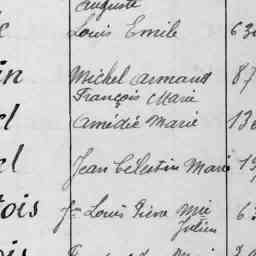 Auguste
Louis Emile 63
in Michel Armand 87
François Marie
el Amédée Marie 13
el Jean Célestin Marie 19
tois Jn Louis Pierre Mie 63
Julien